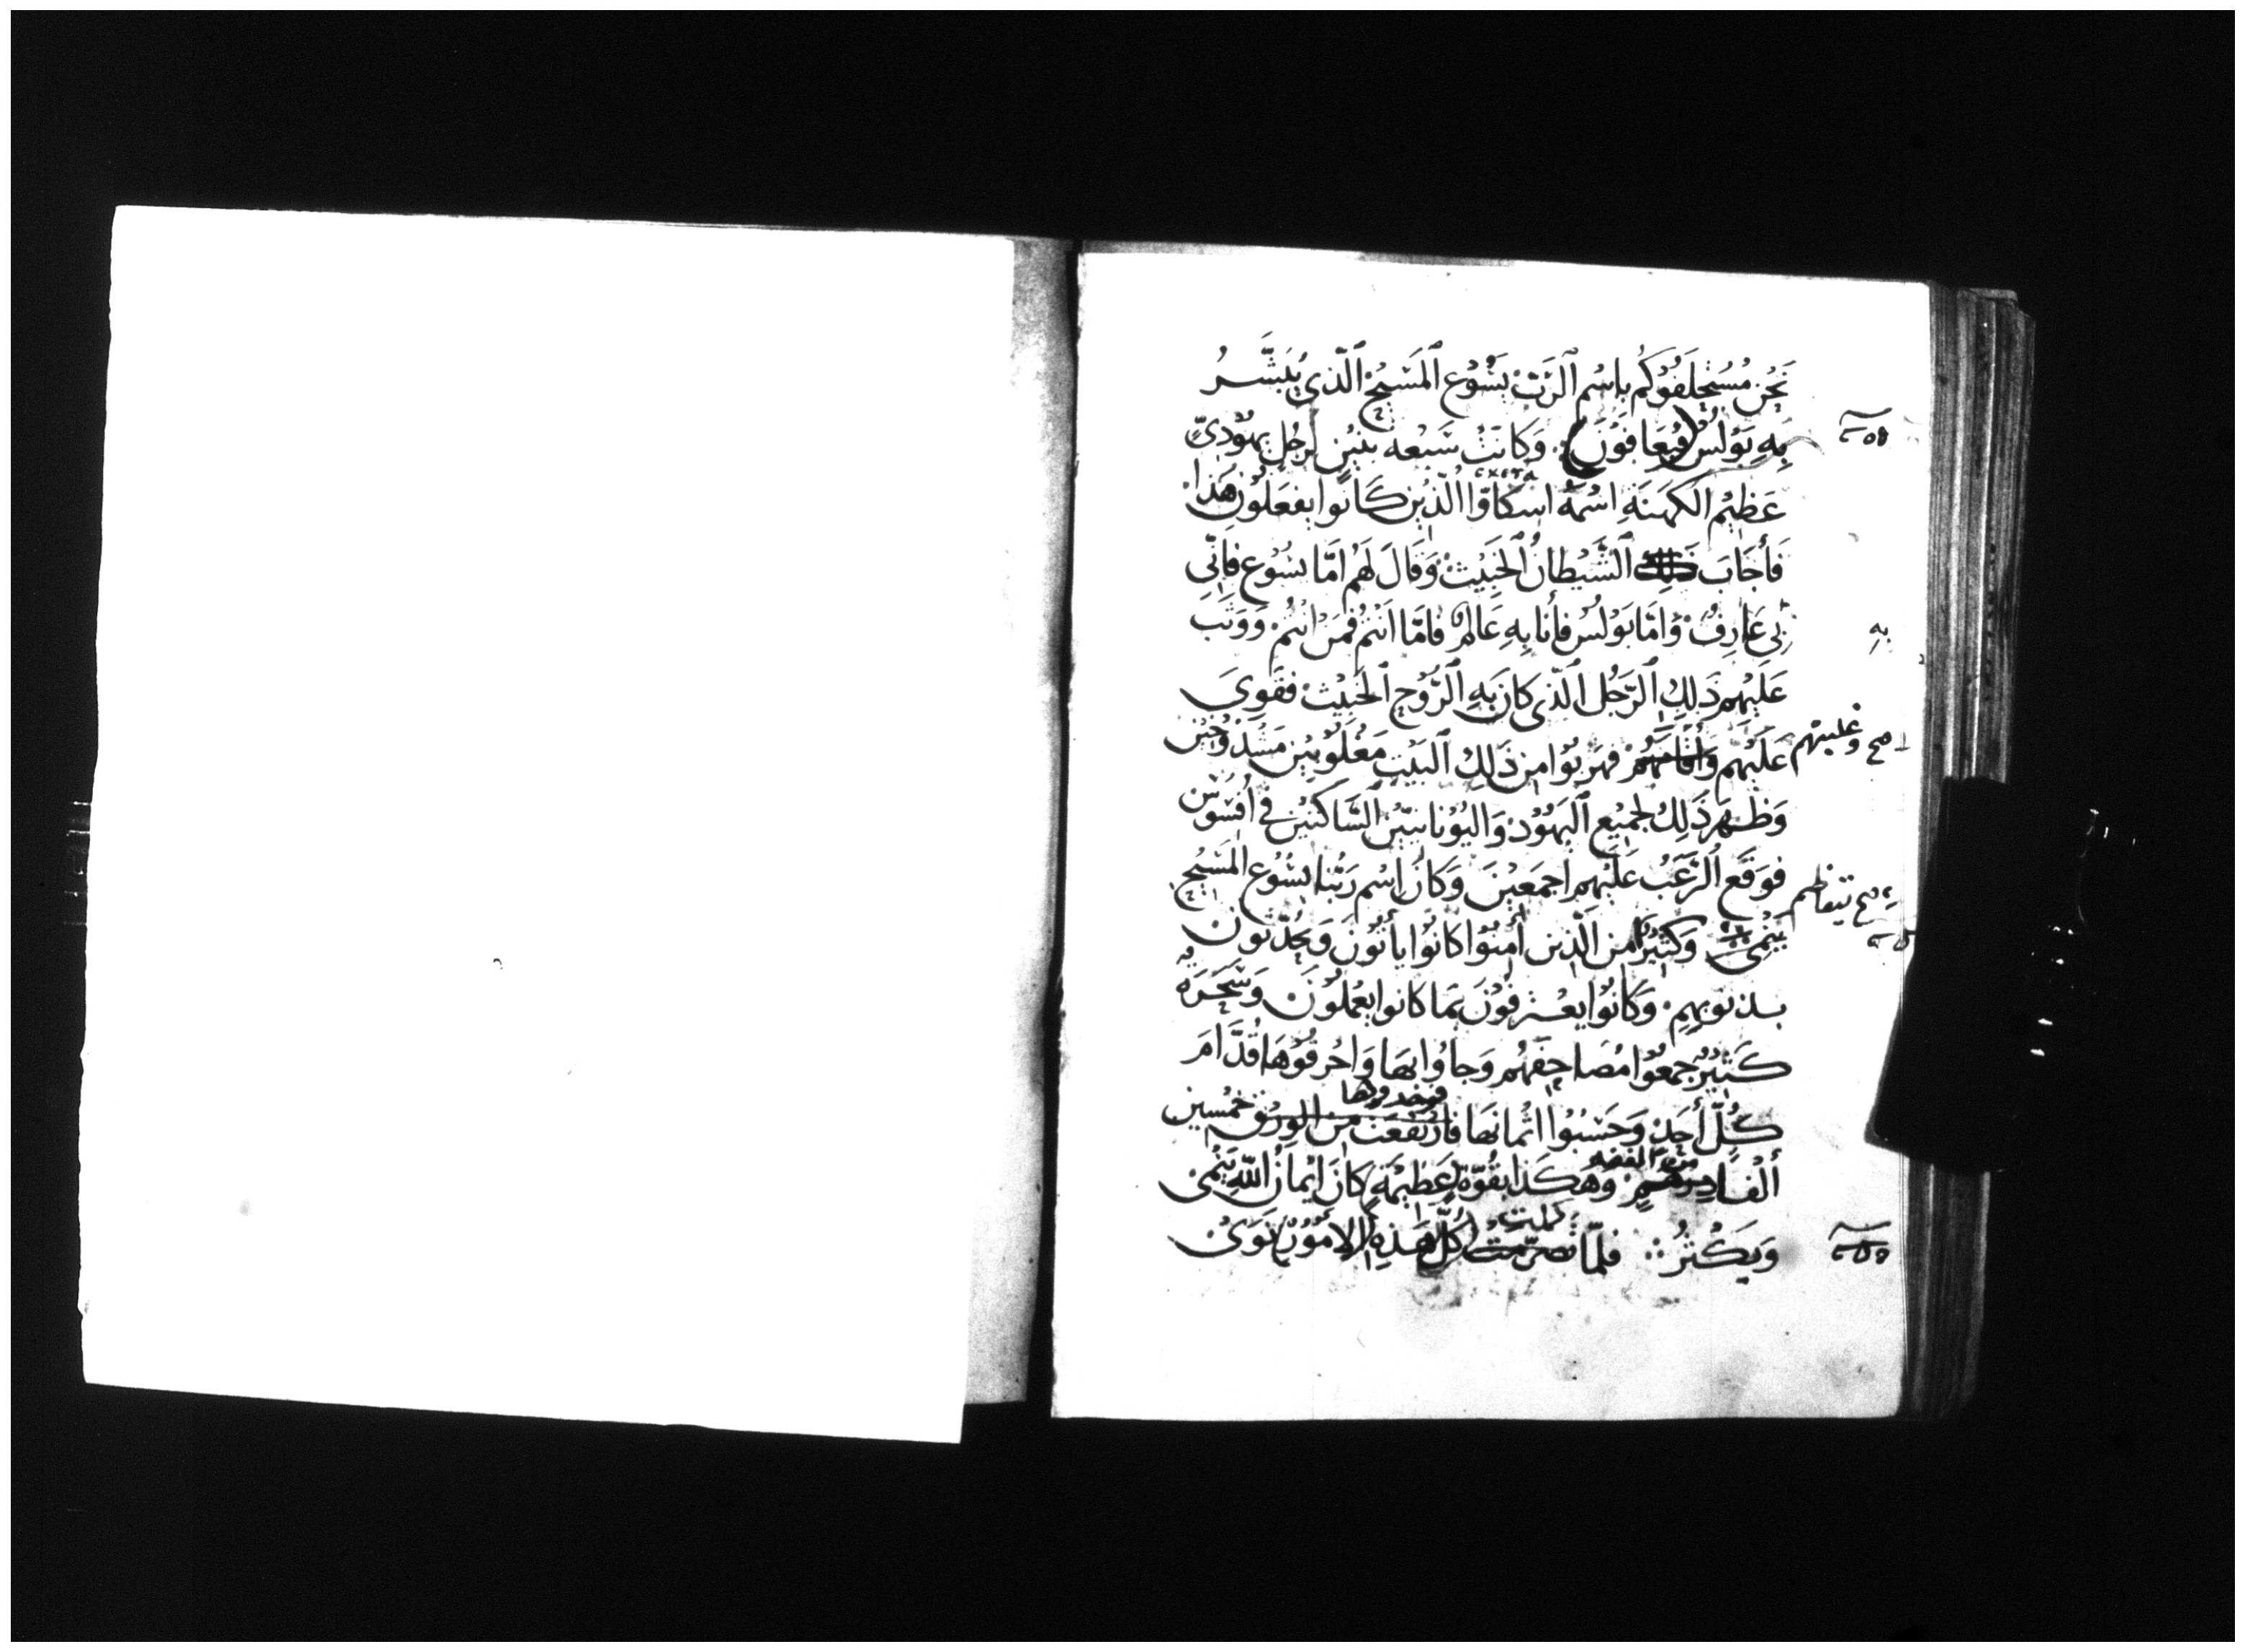 نَحْنُ مُسْتَحْلِفُوْكُمْ بِاسْمِ ٱلرَّبِّ يَسُوْعَ ٱلْمَسِيْحِ ٱلَّذِي يُبَشِّرُ
بِهِ بَوْلُسُ (فَيُعَافَوْنَ) وَكَانَتْ سَبْعَه بَنِيْنَ لِرَجُلٍ يَهُوْدِيٍّ
عَظِيْمِ الكَهَنَةِ اسْمُهُ اسْكَاوَّا الَّذِيْنَ كَانُوا يَفْعَلُوْنَ هَذَا
فَأَجَابَ ٱلشَّيْطَانُ ٱلخَبِيْثُ وَقَالَ لَهُمْ امَّا يَسُوْع فَانِّي
بِي عَارِفٌ وَامَّا بَوْلُسُ فَأَنَا بِهِ عَالِمٌ فَامَّا انْتُمْ فَمَنْ انْتُمْ وَوَثَبَ
به
عَلَيْهِم ذَلِكَ ٱلرَّجُلُ ٱلَّذِي كَانَ بِهِ ٱلرُّوْحُ ٱلخَبِيْثُ فَقَوِيَ
عَلَيْهِم فَهَرَبُوْا مِنْ ذَلِكَ ٱلبَيْتِ مَغْلُوْبِيْنَ مَشْدُوْخِيْنَ
صح وغلبتهم
وَظَهَرَ ذَلِكَ لِجَمِيْعِ ٱليَهُوْدِ وَاليُوْنَانِيِّيْنَ ٱلسَّاكِنِيْنَ فِي افَسُوْسَ
فَوَقَعَ ٱلرُّعْبُ عَلَيْهِمِ اجْمَعِيْنَ وَكَانَ اسْم رَبِّنَا يَسُوْع المَسِيْحِ
صح يتعاظم
يَنْمِي وَكَثِيْرٌ مِنَ الَّذِينَ أَمَنُوْا كَانُوْا يَأْتُوْنَ وَيُحَدِّثُونَ
بِذُنُوْبِهِمِ وَكَانُوْا يَعْتَرِفُوْنَ بِمَا كَانُوا يَعْمَلُوْنَ وَسَحَرَهٌ
كَثِيْرٌ جَمَعُوْا مُصَاحِفَهُم وَجَاوُا بِهَا وَاحْرَقُوْهَا قُدَّامَ
كُلِّ أَحَدٍ وَحَسَبُوْا اثْمَانَهَا فَارْتَفَعَتْ مِنَ الوَرِقِ خَمْسِين
من الفضه
أَلْفًا دِرْهَمٍ وَهَكَذَا بِقُوَّةٍ عَظِيْمَةٍ كَانَ ايْمَانُ اللهِ يَنْمِى
كملت
وَيَكْثُرُ فَلَمَّا تَصَرَّمَتْ كُلُّ هَذِهِ الامُوْرُ نَوَىْ